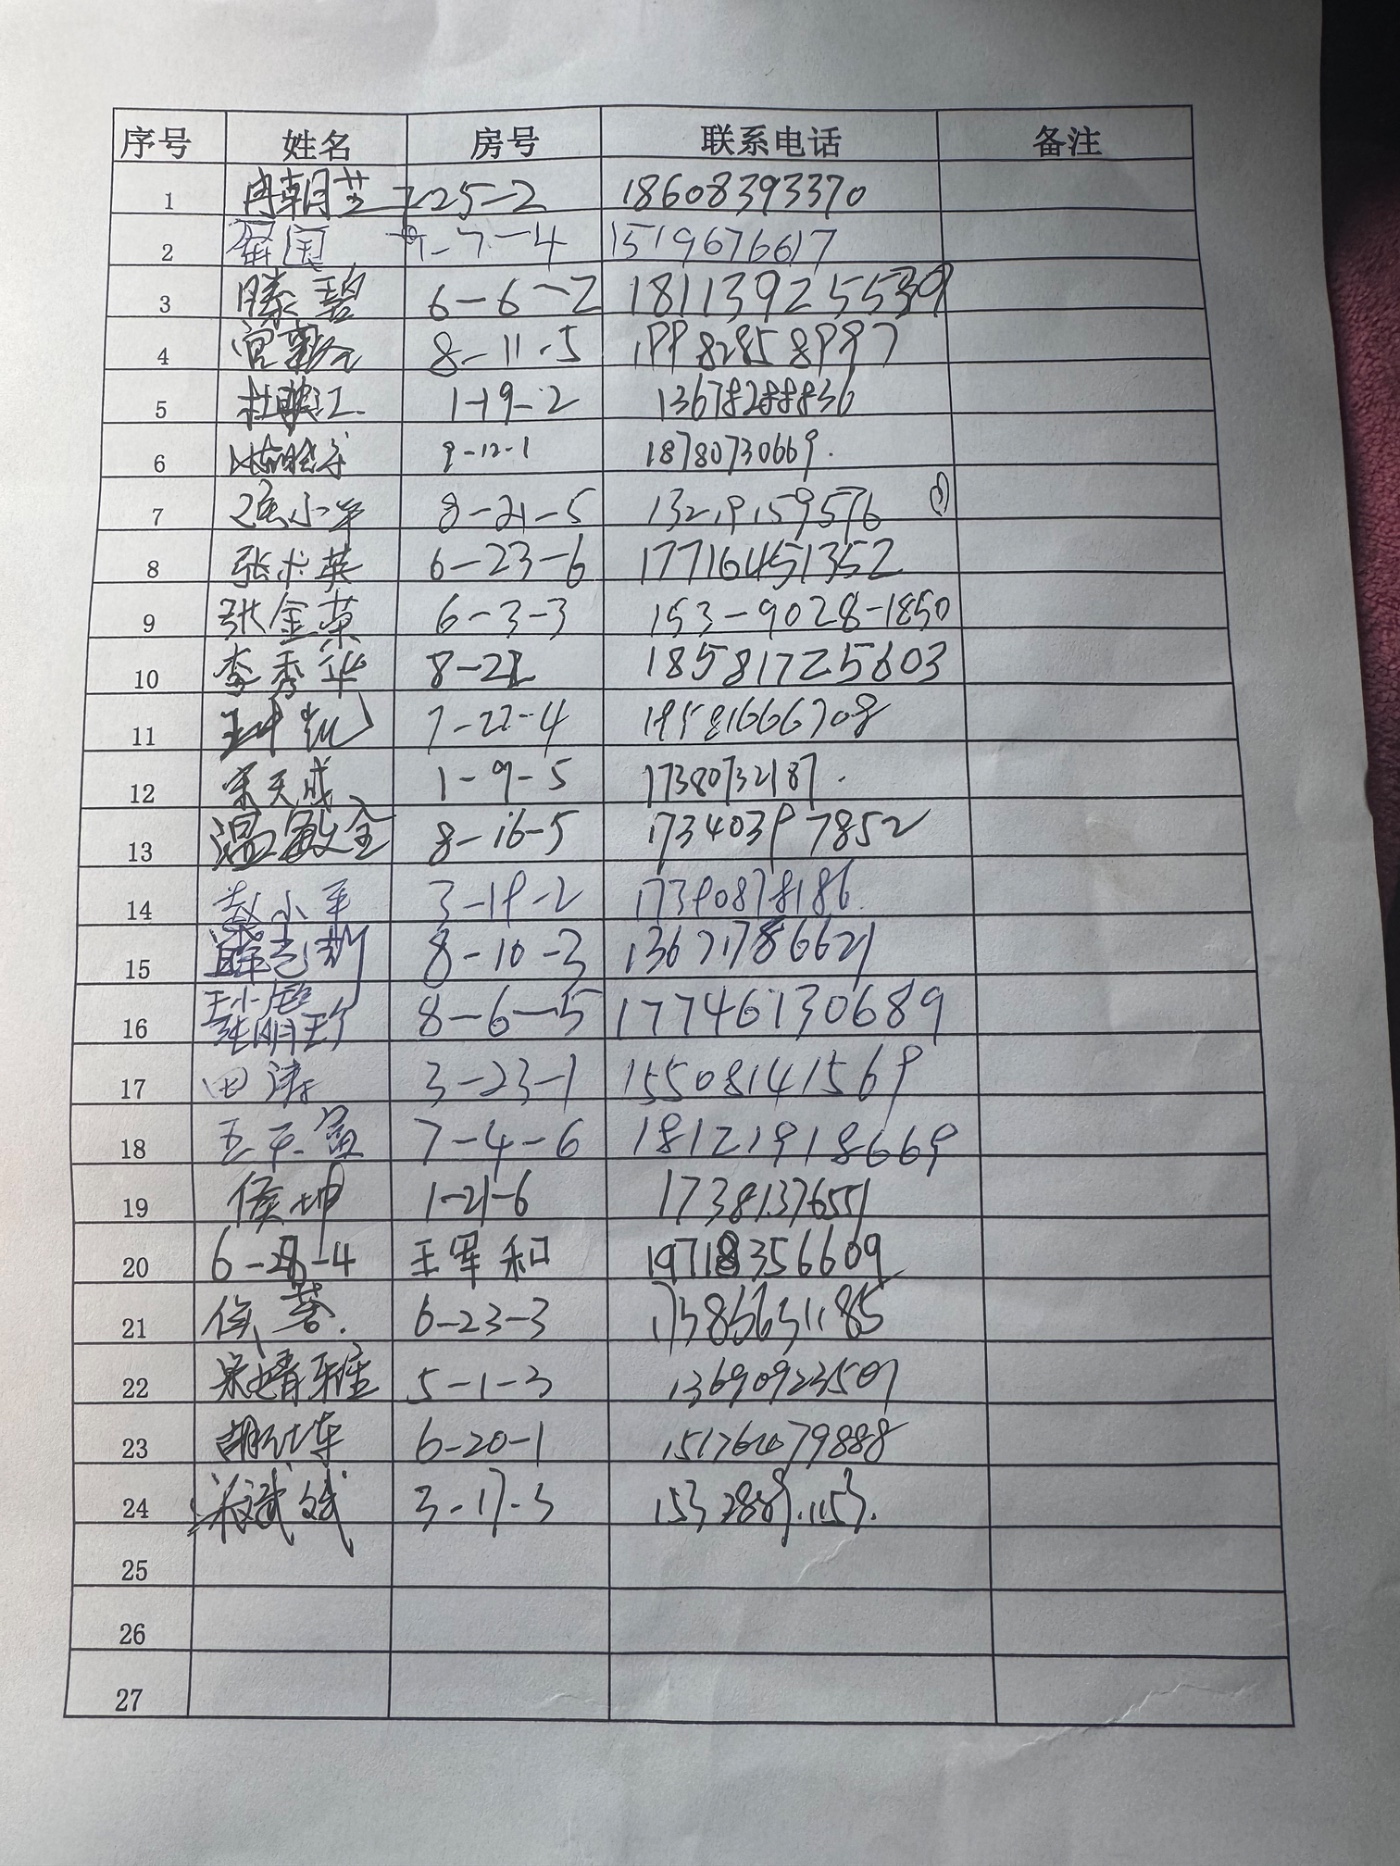 序号 姓名 房号 联系电话 备注
1 冉朝芝 7-25-2 18608393370
2 国 9-7-4 1519676617
3 滕碧 6-6-2 18113925539
4 8-11-5 19982858997
5 杜 江 1-19-2 13678288836
6 9-12-1 18780730669.
7 张小军 8-21-5 13219159576
8 张术英 6-23-6 17716451352
9 张金荣 6-3-3 153-9028-1850
10 李秀华 8-22 18581725603
11 7-22-4 19581666708
12 宋天成 1-9-5 17380732187.
13 温敏全 8-16-5 17340397852
14 小平 3-19-2 17390878186.
15 薛志莉 8-10-3 13671786621
16 王小
张明珍 8-6-5 17746130689
17 田涛 3-23-1 15508141569
18 王平富 7-4-6 18121918669
19 侯坤 1-21-6 17381376551
20 6-28-4 王军和 19718356609
21 蓉. 6-23-3 17386631185
22 5-1-3 13690923507
23 胡仕车 6-20-1 151764079888
24 3-17-3 1532889.1153.
25
26
27